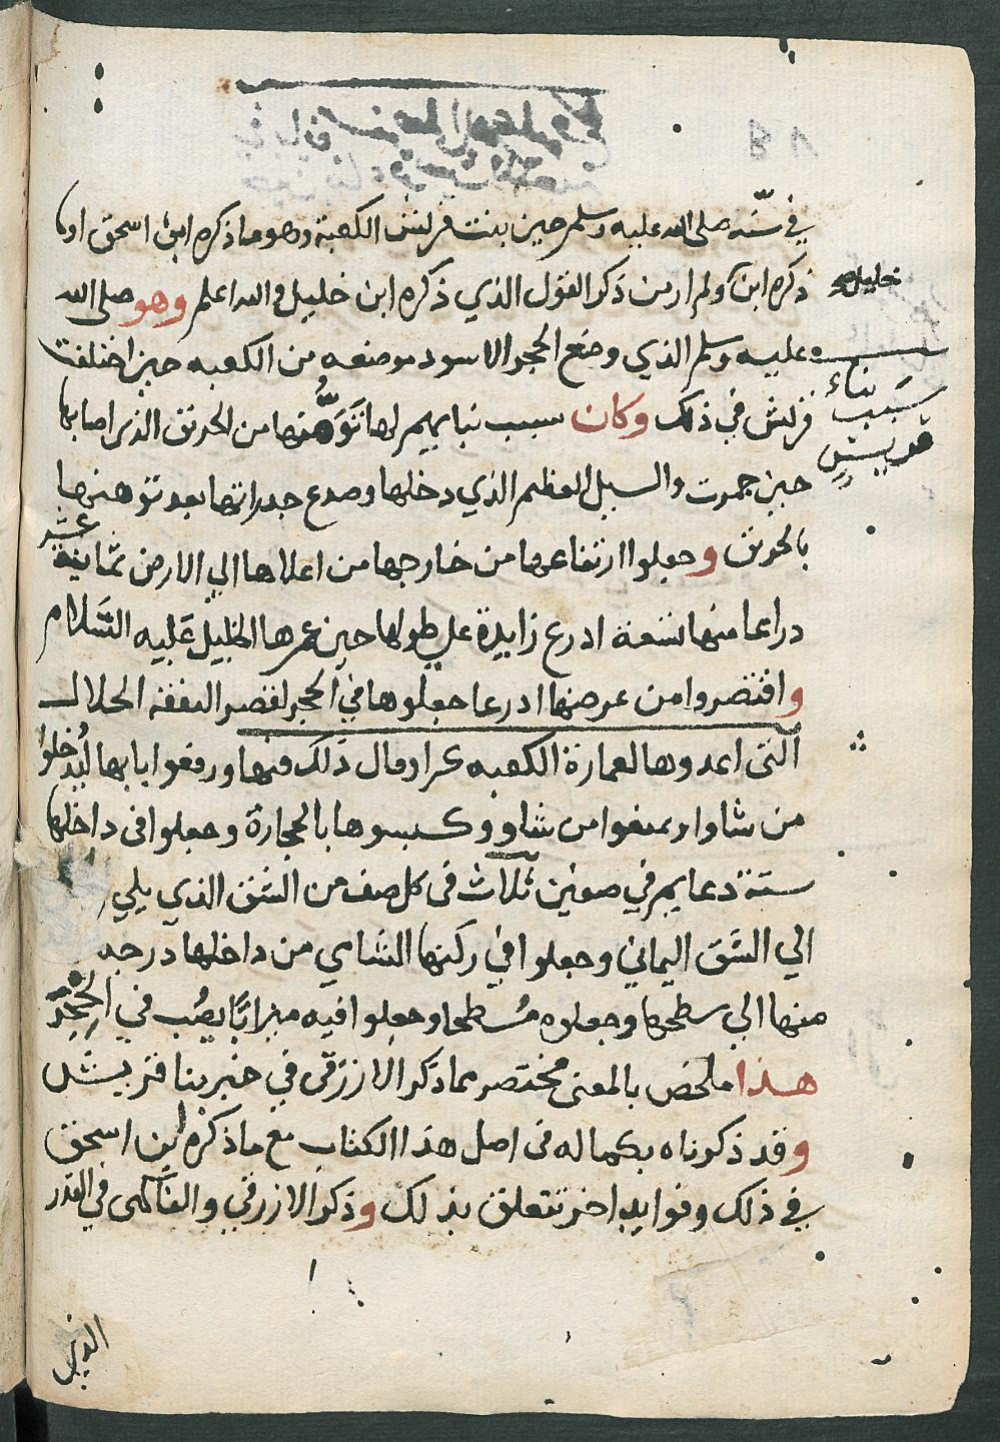 في سنّه صلى الله عليه وسلم حين بنت قريش الكعبة وهو ما ذكره ابن اسحق او ما
ذكره ابن ولم ار من ذكر القول الذي ذكره ابن خليل والله اعلم وهو صلى الله
خليل
عليه وسلم الذي وضع الحجر الاسود موضعه من الكعبه حين اختلفت
قريش في ذلك وكان سبب بنايهم لها توهّنها من الحريق الذي اصابها
سبب بناء
قريش
حين جمرت والسيل العظيم الذي دخلها وصدع جدرانها بعد توهنها
بالحريق وجعلوا ارتفاعها من خارجها من اعلاها الي الارض ثمانية عشر
دراعا منها تسعة ادرع زايدة علي طولها حين عمرها الخليل عليه السلام
واقتصروا من عرضها ادرعا جعلوها في الحجر لقصر النفقه الحلال
التي اعدوها لعمارة الكعبه عن ادخال ذلك فيها ورفعوا بابها ليدخلوا
من شاوا ويمنعوا من شاوو وكبسوها بالحجارة وجعلوا في داخلها
ستة دعايم في صفين ثلاث في كل صف من الشق الذي يلي
الي الشق اليماني وجعلوا في ركنها الشامي من داخلها درجه
منها الي سطحها وجعلوه مسطحا وجعلوا فيه ميزابًا يصُب في الحجر
هذا ملخص بالمعني مختصر مما ذكر الازرقي في خبر بنا قريش
وقد ذكرناه بكماله في اصل هذا الكتاب مع ما ذكره ابن اسحق
في ذلك وفوايد اخر تتعلق بذلك وذكر الازرقي والفاكهي في القدر
الذي